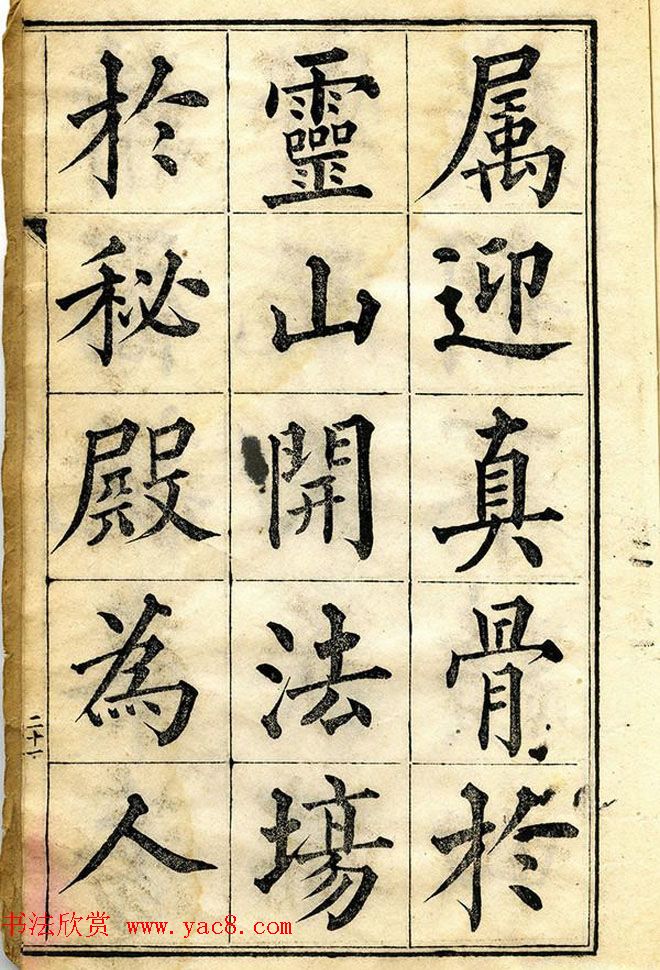 属迎真骨於
靈山開法場
於秘殿為人
二十一
书法欣赏 www.yac8.com